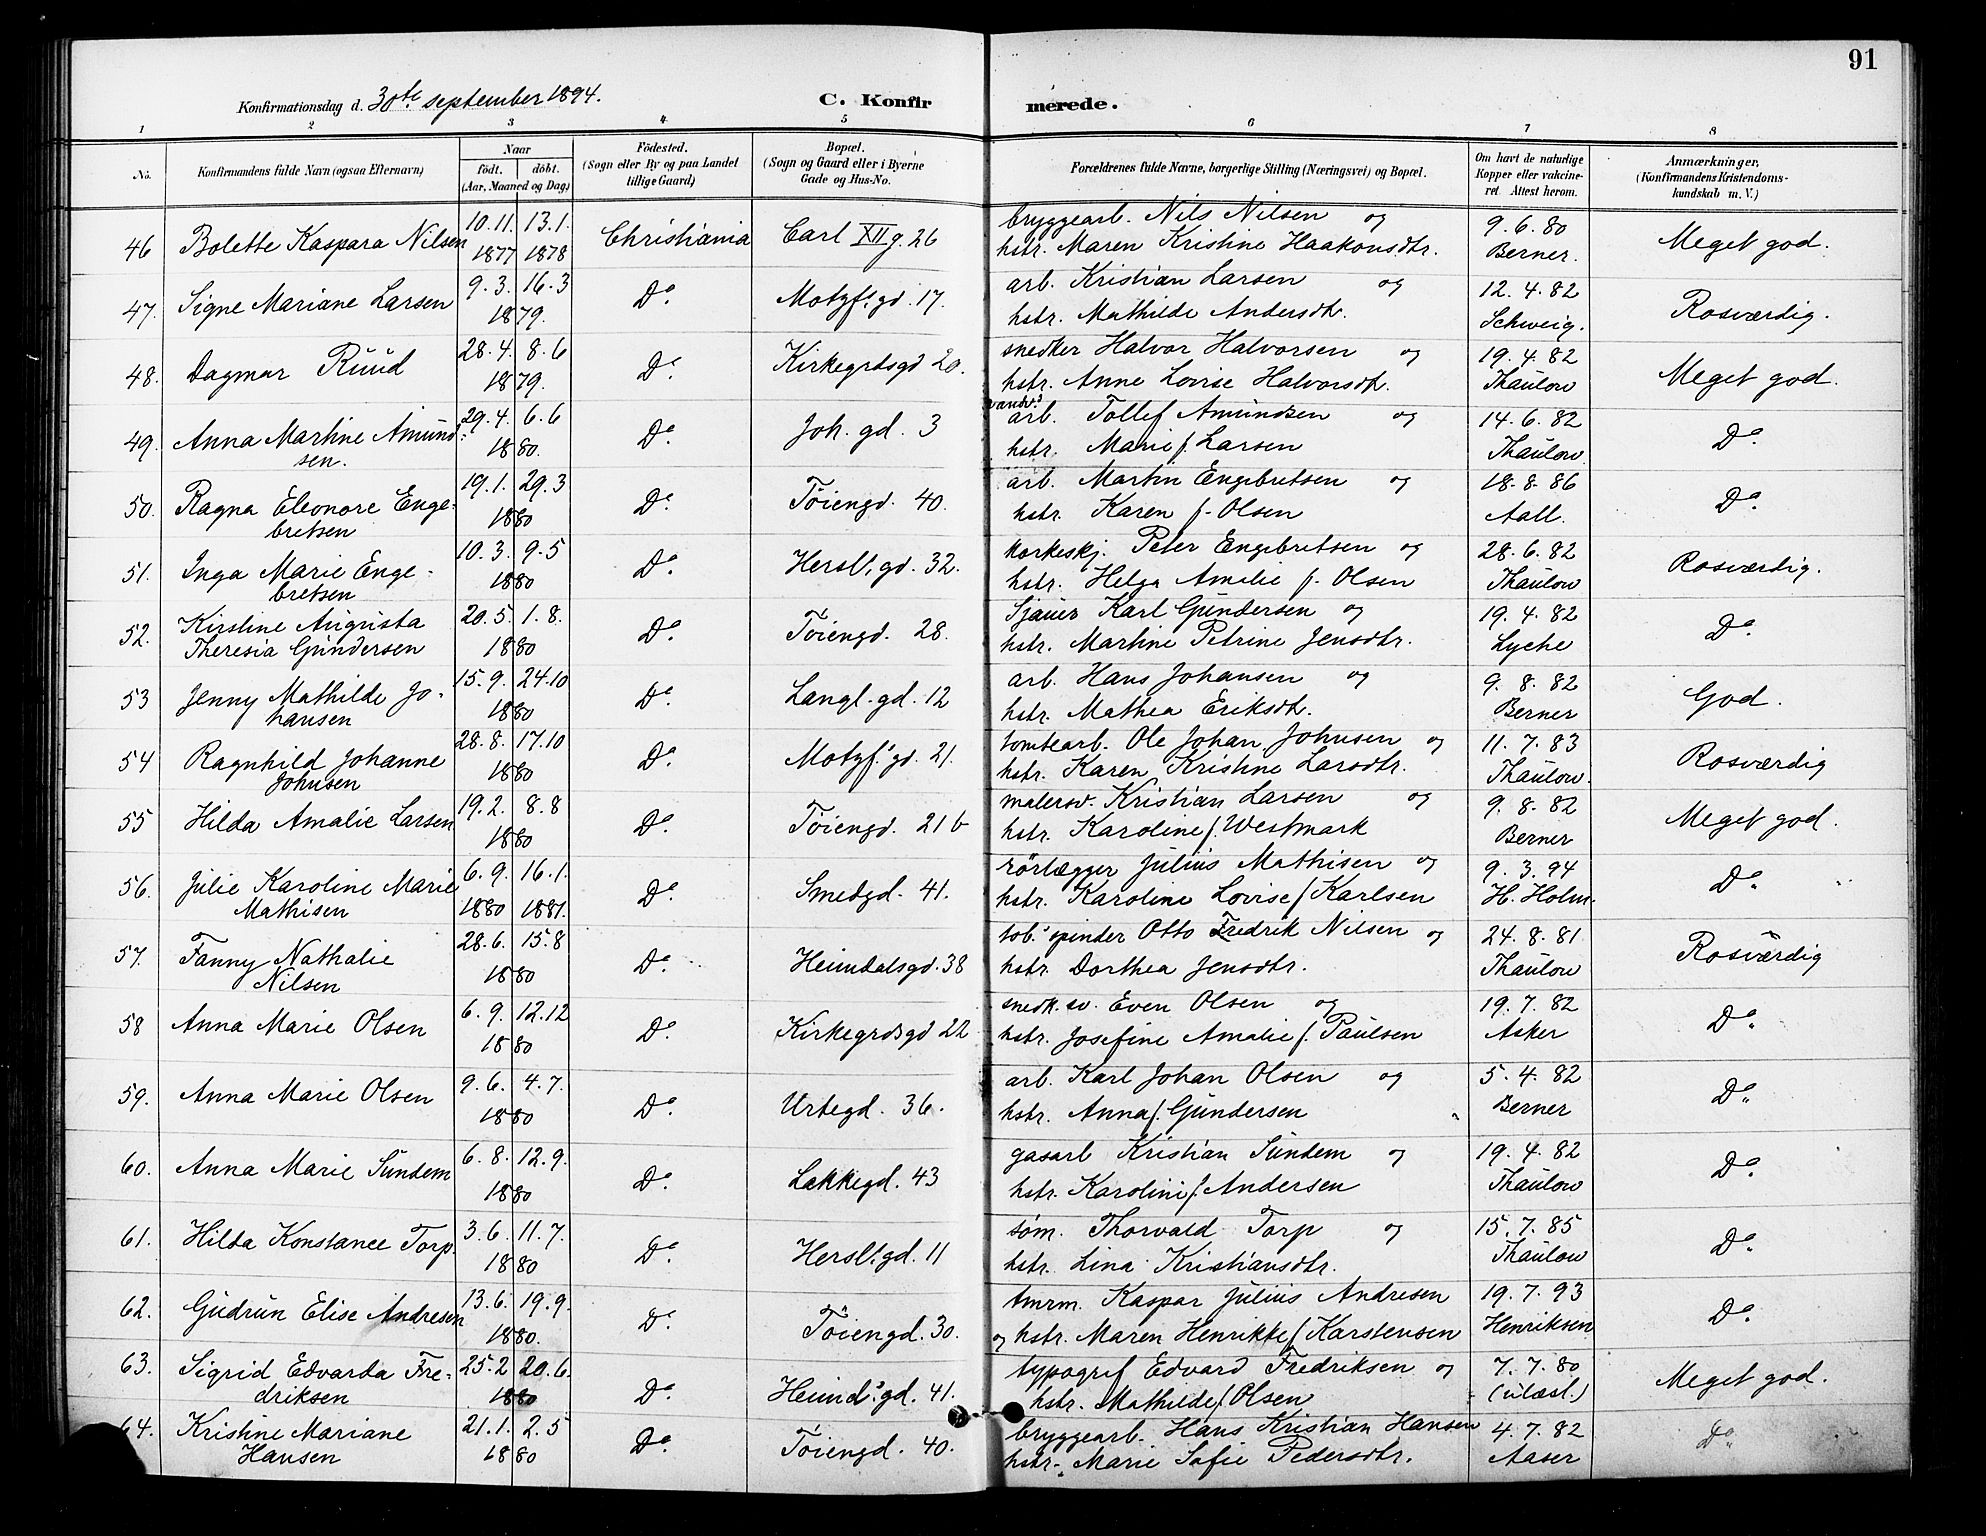 91
Konfirmationsdag d. 30te september 1894. C. Konfirmerede.
1 2 3 4 5 6 7 8
No. Konfirmandens fulde Navn (ogsaa Efternavn) Naar født. døbt. (Aar, Maaned og Dag) Födested. (Sogn eller By og paa Landet tillige Gaard) Bopæl. (Sogn og Gaard eller i Byerne Gade og Hus-No. Forældrenes fulde Navne, borgerlige Stilling (Næringsvei) og Bopæl. Om havt de naturlige Kopper eller vakcineret. Attest herom. Anmærkninger, (Konfirmandens Kristendomskundskab m. V.)
46 Bolette Kaspara Nilsen 10.11. 1877 13.1. 1878 Christiania Carl XII g. 26 bryggearb. Nils Nilsen og
hstr. Maren Kristine Haakonsdtr. 9.6.80 Berner. Meget god.
47. Signe Mariane Larsen 9.3. 16.3 1879. Do. Motzf.s gd. 17. arb. Kristian Larsen og
hstr. Mathilde Andersdtr. 12.4.82 Schweig. Rosværdig.
48. Dagmar Ruud 28.4. 8.6 1879. Do. Kirkegrdsgd 20. snedker Halvor Halvorsen og
hstr. Anne Lovise Halvorsdtr. 19.4.82 Thaulow Meget god.
49. Anna Martine Amundsen. 29.4. 6.6 1880. Do. Joh. gd. 3 arb. Tollef Amundsen og
hstr. Marie f. Larsen 14.6.82 Thaulow Do.
50. Ragna Eleonore Engebretsen 19.1. 29.3 1880 Do. Töiengd. 40. arb. Martin Engebretsen og
hstr. Karen f. Olsen 18.8.86 Aall. Do.
51. Inga Marie Engebretsen 10.3. 9.5 1880 Do. Hersl. gd. 32. korkeskj. Peter Engebretsen og
hstr. Helga Amalie f. Olsen 28.6.82 Thaulow Rosværdig.
52. Kirstine Augusta
Theresia Gundersen 20.5. 1.8. 1880 Do. Töiengd. 28. Sjauer Karl Gundersen og
hstr. Martine Petrine Jensdtr. 19.4.82 Lyche Do.
53 Jenny Mathilde Johansen 15.9. 24.10 1880 Do. Langl. gd. 12 arb. Hans Johansen og
hstr. Mathea Eriksdtr. 9.8.82 Berner God.
54 Ragnhild Johanne
Johnsen 28.8. 17.10 1880 Do. Motzf.s gd. 21. tomtearb. Ole Johan Johnsen og
hstr. Karen Kristine Larsdtr. 11.7.83 Thaulow. Rosværdig
55 Hilda Amalie Larsen 19.2. 8.8 1880 Do. Töiengd. 21 b malersv. Kristian Larsen og
hstr. Karoline f. Westmark 9.8.82 Berner Meget god.
56. Julie Karoline Marie
Mathisen 6.9. 1880 16.1. 1881. Do. Smedgd. 41. rörlægger Julius Mathisen og
hstr. Karoline Lovise f. Karlsen 9.3.94 H. Holm. Do.
57. Fanny Nathalie
Nilsen 28.6. 15.8 1880 Do. Heimdalsgd. 38 tob.spinder Otto Fredrik Nilsen og
hstr. Dorthea Jensdtr. 24.8.81 Thaulow Rosværdig
58 Anna Marie Olsen 6.9. 12.12 1880 Do. Kirkegrdsgd 22 snedk.sv. Even Olsen og
hstr. Josefine Amalie f. Paulsen 19.7.82 Asker Do.
59. Anna Marie Olsen 9.6. 4.7. 1880 Do. Urtegd. 36. arb. Karl Johan Olsen og
hstr. Anna f. Gundersen 5.4.82 Berner Do.
60. Anna Marie Sundem 6.8. 12.9. 1880 Do. Lakkegd. 43 gasarb Kristian Sundem og
hstr. Karolini f. Andersen 19.4.82 Thaulow Do.
61. Hilda Konstance Torp. 3.6. 11.7. 1880 Do. Hersl. gd. 11 söm. Thorvald Torp og
hstr. Lina Kristiansdtr. 15.7.85 Thaulow Do.
62. Gudrun Elise Andresen 13.6. 19.9. 1880. Do. Töiengd. 30. tmrm. Kaspar Julius Andresen
og hstr. Maren Henrikke f. Karstensen 19.7.93 Henriksen Do.
63. Sigrid Edvarda Fredriksen 25.2 20.6. 1880 Do. Heimd.s gd. 41. typograf Edvard Fredriksen og
hstr. Mathilde f. Olsen 7.7.80 (ulæsl.) Meget god.
64. Kristine Mariane
Hansen 21.1. 2.5 1880 Do. Töiengd. 40. bryggearb. Hans Kristian Hansen
hstr. Marie Sofie Pedersdtr. 4.7.82 Aaser Do.